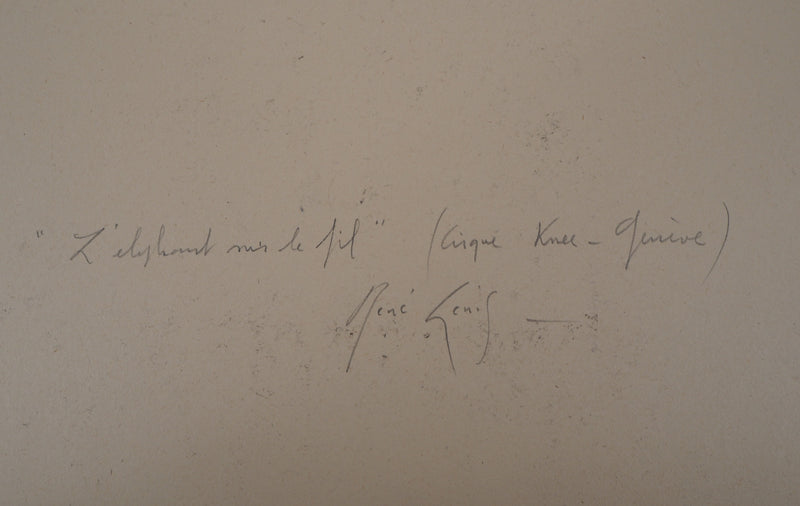 "L'eléphant sur le fil" (Cirque Knee - Genève)
René Genis